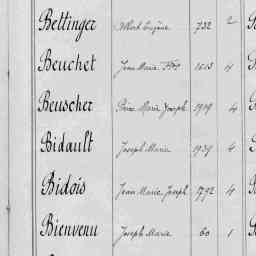 Bettinger Albert Eugène 732 2
Beuchet Jean Marie 1613 4
Beuscher Pierre Marie Joseph 1919 4
Bidault Joseph Marie 1939 4
Bidois Jean Marie Joseph 1792 4
Bienvenu Joseph Marie 60 1